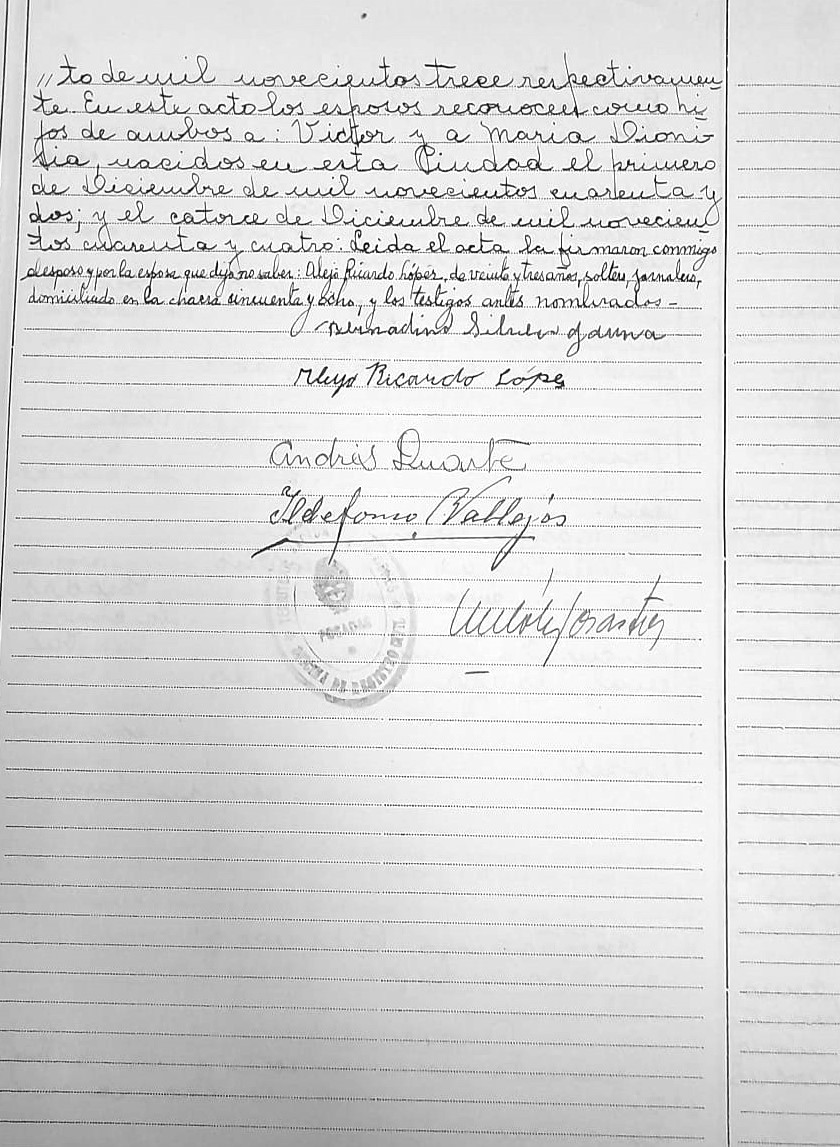 //to de mil novecientos trece respectivamen-
te. En este acto los esposos reconocen como hi-
jos de ambos a: Victor y a Maria Dioni-
sia, nacidos en esta Ciudad el primero
de Diciembre de mil novecientos cuarenta y
dos; y el catorce de Diciembre de mil novecien-
tos cuarenta y cuatro: Leida el acta la firmaron conmigo
el esposo y por la esposa que dijo no saber: Alejo Ricardo López, de veinte y tres años, soltero, jornalero,
domiciliado en la chacra cincuenta y ocho, y los testigos antes nombrados -
Bernardino Gauna
Alejo Ricardo López
Andrés Duarte
Ildefonso Vallejos
POSADAS
OFICINA DE REGISTRO CIVIL